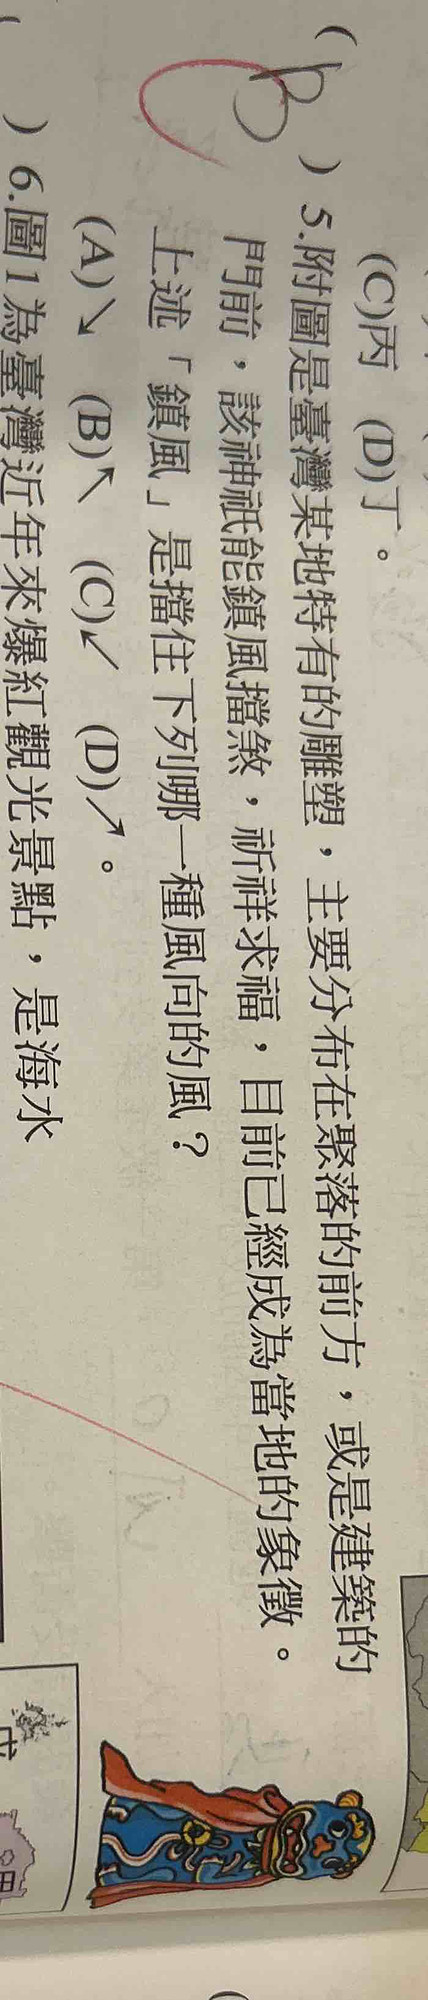 (C)丙 (D)丁。
( B ) 5.附圖是臺灣某地特有的雕塑，主要分布在聚落的前方，或是建築的
門前，該神祇能鎮風擋煞，祈祥求福，目前已經成為當地的象徵。
上述「鎮風」是擋住下列哪一種風向的風？
(A)↗ (B)↙ (C)↘ (D)↖。
) 6.圖1為臺灣近年來爆紅觀光景點，是海水